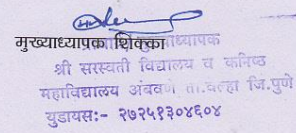 मुख्याध्यापक शिक्का
मुख्याध्यापक
श्री सरस्वती विद्यालय व कनिष्ठ
महाविद्यालय अंबवणे ता.वेल्हा जि.पुणे
युडायस:- २७२५१३०४६०४